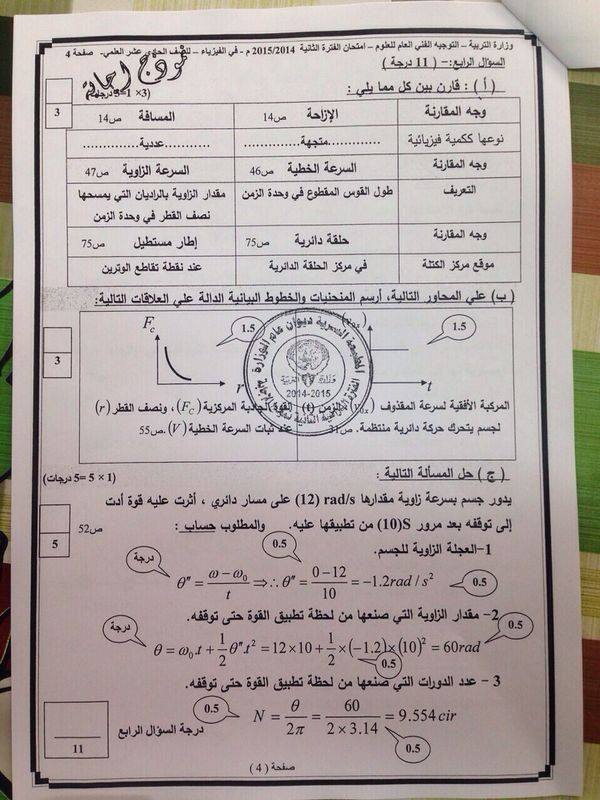 وزارة التربية – التوجيه الفني العام للعلوم – امتحان الفترة الثانية 2015/2014 م - في الفيزياء – للصف الحادي عشر العلمي- صفحة 4
نموذج اجابة
السؤال الرابع:- ( 11 درجة )
( أ ) : قارن بين كل مما يلي : (3× 1=3 درجات)
3
وجه المقارنة الإزاحة ص14 المسافة ص14
نوعها ككمية فيزيائية .............متجهة............. .............عددية.............
وجه المقارنة السرعة الخطية ص46 السرعة الزاوية ص47
التعريف طول القوس المقطوع في وحدة الزمن مقدار الزاوية بالراديان التي يمسحها
نصف القطر في وحدة الزمن
وجه المقارنة حلقة دائرية ص75 إطار مستطيل ص75
موقع مركز الكتلة في مركز الحلقة الدائرية عند نقطة تقاطع الوترين
( ب ) علي المحاور التالية، أرسم المنحنيات والخطوط البيانية الدالة علي العلاقات التالية:
1.5 t
F_c 1.5 r
3
2014-2015
المركبة الأفقية لسرعة المقذوف الزمن (t)
القوة الجاذبة المركزية (F_C) ، ونصف القطر (r)
لجسم يتحرك حركة دائرية منتظمة. عند ثبات السرعة الخطية (V) .ص55
( ج ) حل المسألة التالية : (1 × 5 =5 درجات)
يدور جسم بسرعة زاوية مقدارها (12) rad/s على مسار دائري ، أثرت عليه قوة أدت
إلى توقفه بعد مرور S(10) من تطبيقها عليه. والمطلوب حساب : ص52
5
1–العجلة الزاوية للجسم. 0.5
درجة θ″ = (ω − ω₀)/t ⇒ ∴ θ″ = (0−12)/10 = −1.2rad / s² 0.5
2– مقدار الزاوية التي صنعها من لحظة تطبيق القوة حتى توقفه. 0.5
درجة θ = ω₀.t + 1/2 θ″.t² = 12×10 + 1/2 ×(−1.2)×(10)² = 60rad 0.5
0.5
3 – عدد الدورات التي صنعها من لحظة تطبيق القوة حتى توقفه.
0.5 N = θ/2π = 60/(2×3.14) = 9.554 cir
0.5
درجة السؤال الرابع
11
صفحة ( 4 )